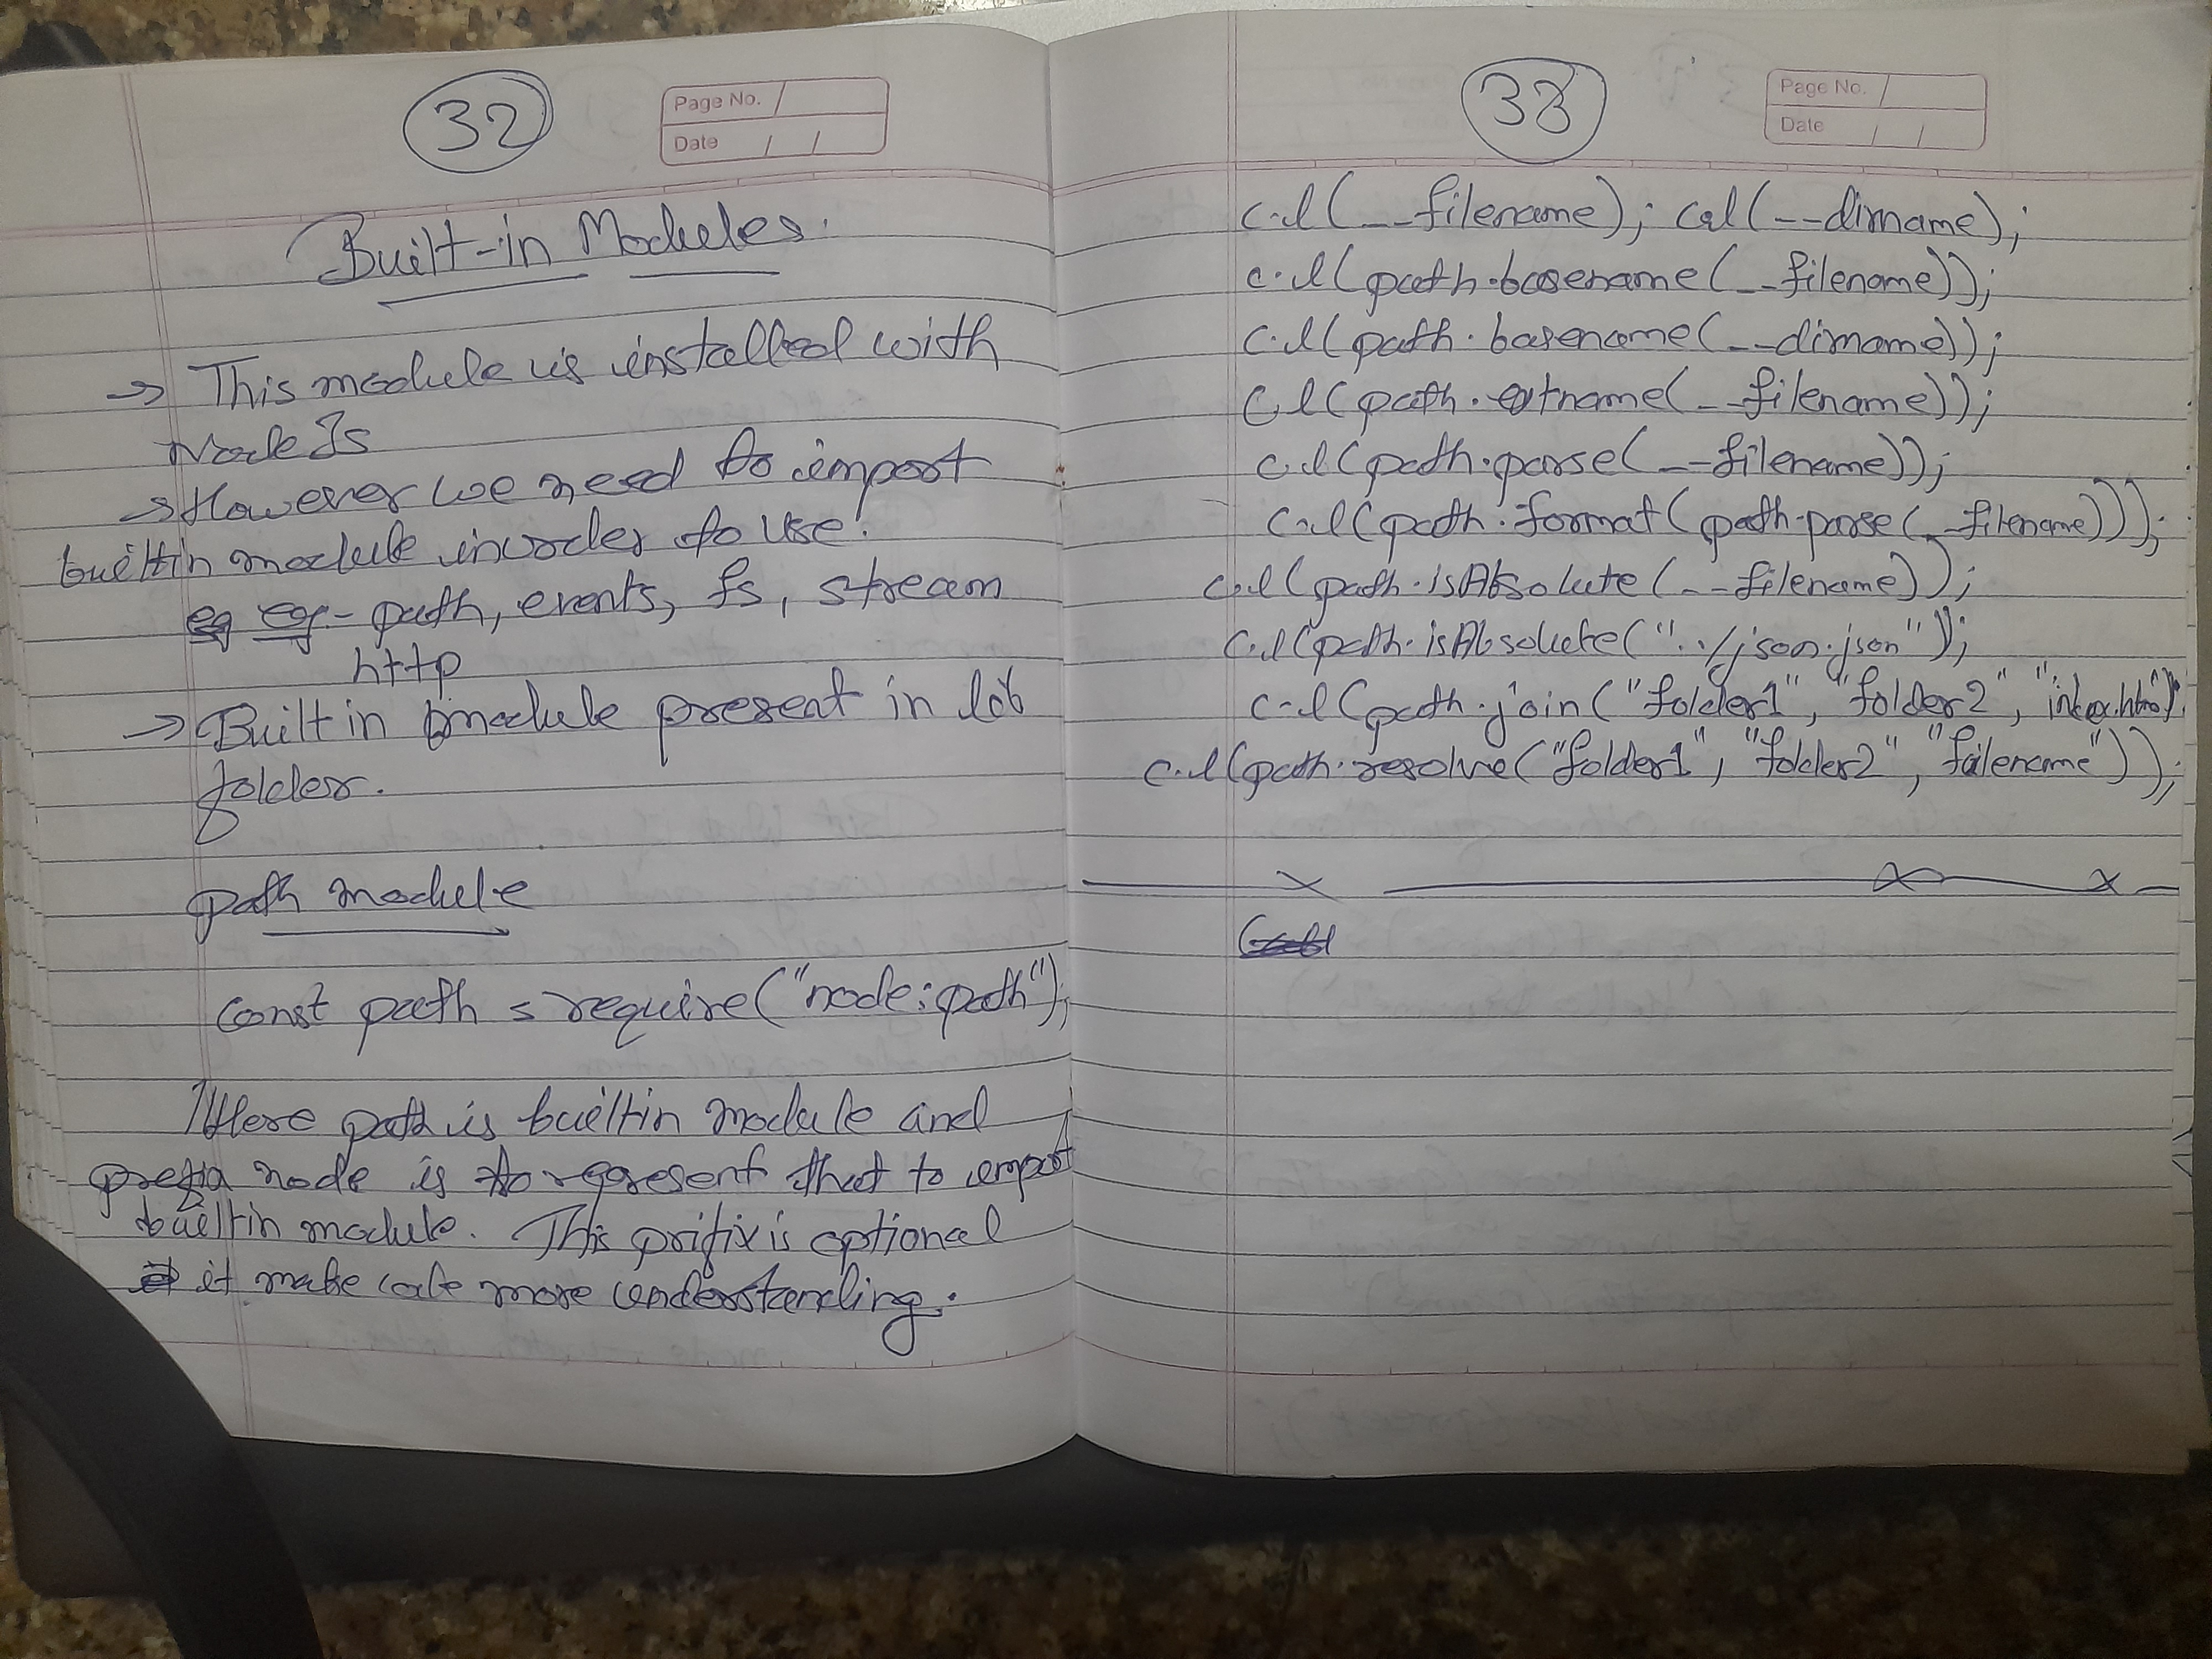 32
Page No.
Date / /
Built-in Modules.
→ This module is installed with
Node Js
→ However we need to import
builtin module inorder to use.
eg:- path, events, fs, stream
http
→ Built in module present in lib
folder.
path module
const path = require("node:path");
Here path is builtin module and
prefix node is to represent that to import
builtin module. This prifix is optional
it make code more understanding.
33
Page No.
Date / /
c.l(__filename); c.l(__dirname);
c.l(path.basename(__filename));
c.l(path.basename(__dirname));
c.l(path.extname(__filename));
c.l(path.parse(__filename));
c.l(path.format(path.parse(__filename)));
c.l(path.isAbsolute(__filename));
c.l(path.isAbsolute("../json.json"));
c.l(path.join("folder1", "folder2", "index.html"));
c.l(path.resolve("folder1", "folder2", "filename"));